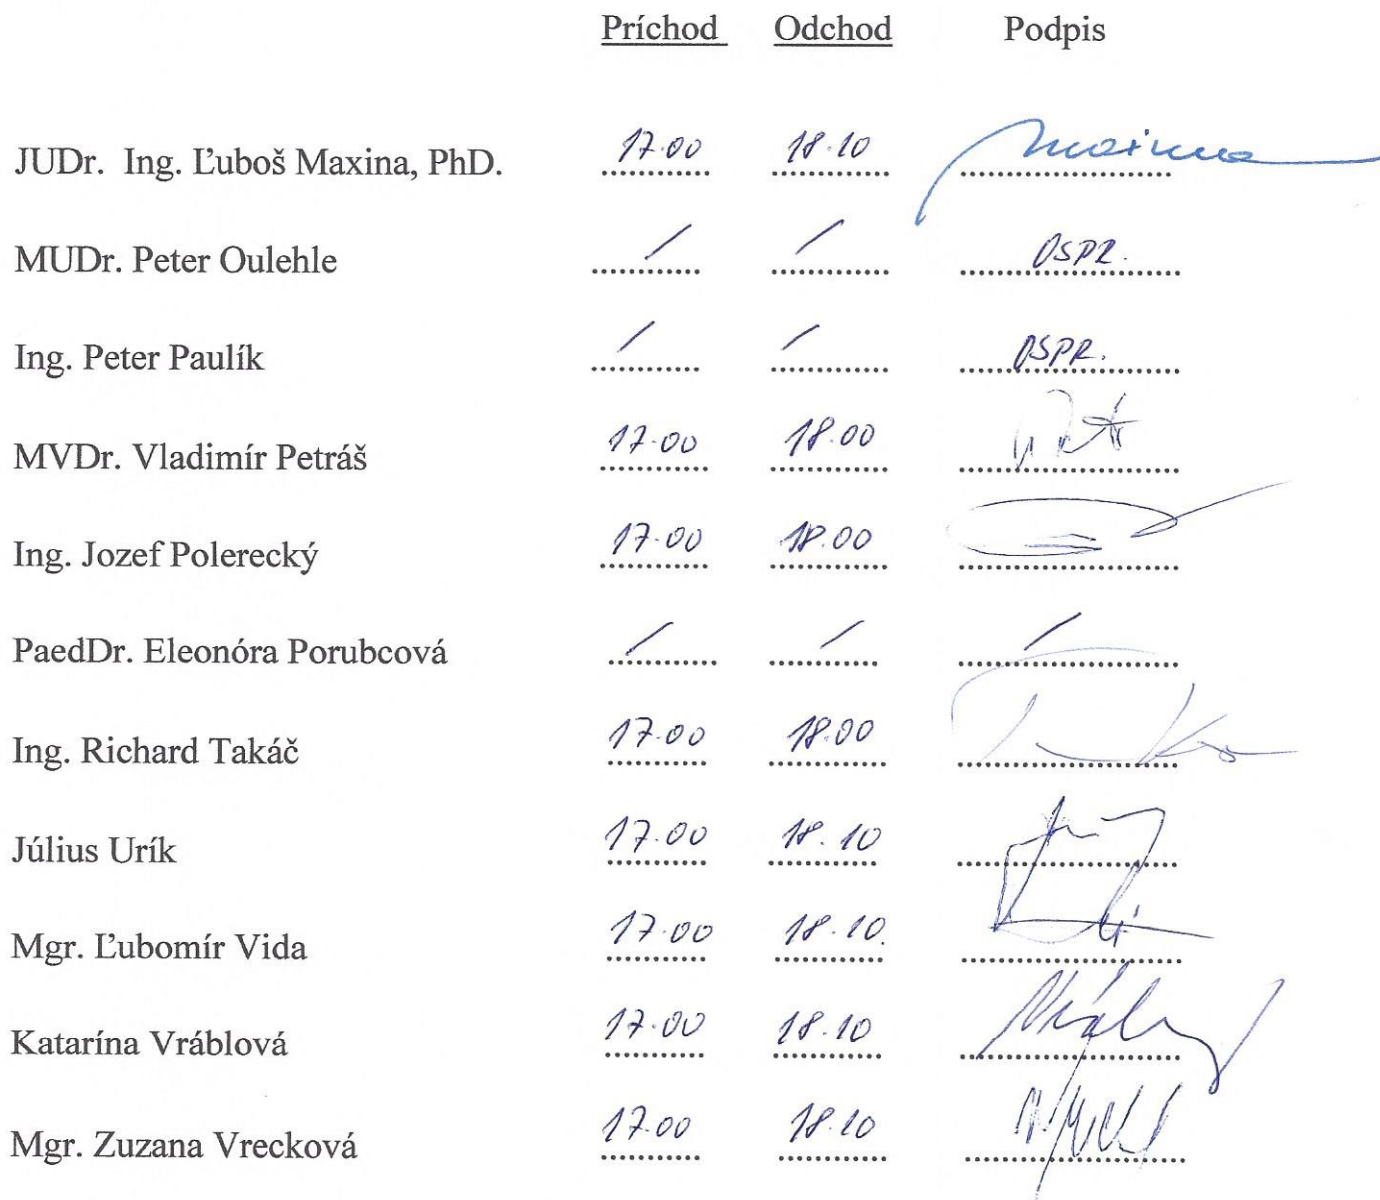 Príchod Odchod Podpis
JUDr. Ing. Ľuboš Maxina, PhD. 17.00 18.10 Maxina
MUDr. Peter Oulehle / / OSPR.
Ing. Peter Paulík / / OSPR.
MVDr. Vladimír Petráš 17.00 18.00
Ing. Jozef Polerecký 17.00 18.00
PaedDr. Eleonóra Porubcová / / /
Ing. Richard Takáč 17.00 18.00
Július Urík 17.00 18.10
Mgr. Ľubomír Vida 17.00 18.10.
Katarína Vráblová 17.00 18.10
Mgr. Zuzana Vrecková 17.00 18.10